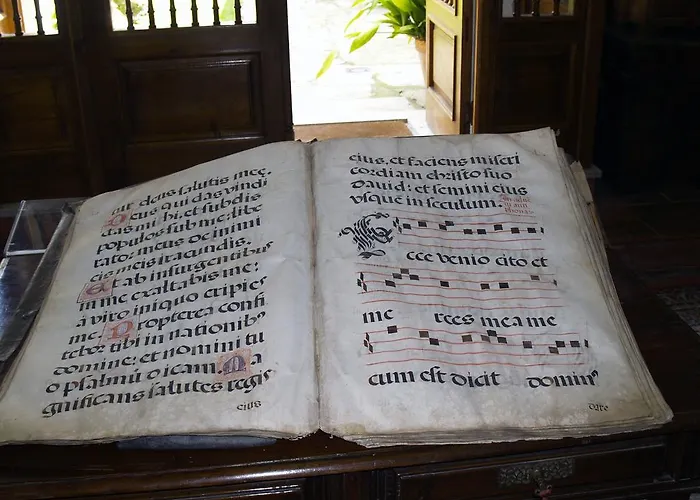 tur deus salutis meę.
Deus qui das vindi
ctas mihi, et subdis
populos sub me: libe
rator meus de inimi
cis meis iracundis.
Et ab insurgentibus
in me exaltabis me:
a viro iniquo eripies
me. Propterea confi
tebor tibi in nationib9
domine: et nomini tu
o psalmū dicam. Ma
gnificans salutes regis
eius
eius, et faciens miseri
cordiam christo suo
dauid: et semini eius
vsque in seculum.
Ecce venio cito et
me rces mea me
cum est dicit domin9
dare